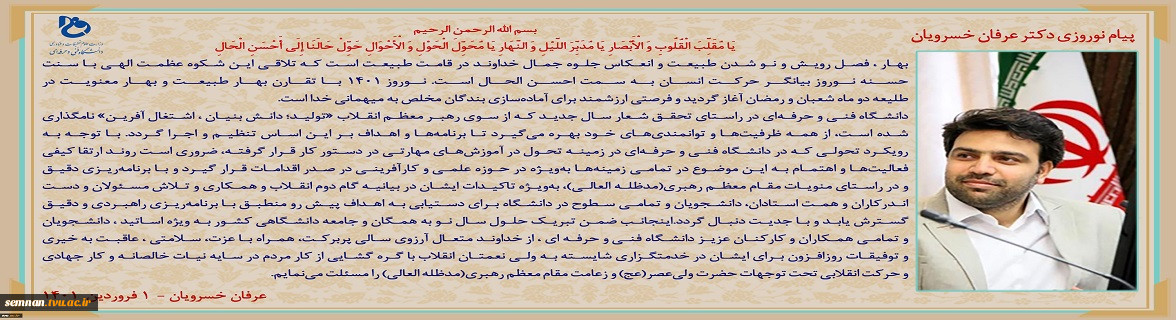 پیام نوروزی دکتر عرفان خسرویان
بسم الله الرحمن الرحیم
یَا مُقَلِّبَ الْقُلُوبِ وَ الْأَبْصَارِ یَا مُدَبِّرَ اللَّیْلِ وَ النَّهَارِ یَا مُحَوِّلَ الْحَوْلِ وَ الْأَحْوَالِ حَوِّلْ حَالَنَا إِلَى أَحْسَنِ الْحَالِ
بهار ، فصل رویش و نو شدن طبیعت و انعکاس جلوه جمال خداوند در قامت طبیعت است که تلاقی این شکوه عظمت الهی با سنت
حسنه نوروز بیانگر حرکت انسان به سمت احسن الحال است. نوروز ۱۴۰۱ با تقارن بهار طبیعت و بهار معنویت در
طلیعه دو ماه شعبان و رمضان آغاز گردید و فرصتی ارزشمند برای آماده‌سازی بندگان مخلص به میهمانی خدا است.
دانشگاه فنی و حرفه‌ای در راستای تحقق شعار سال جدید که از سوی رهبر معظم انقلاب «تولید؛ دانش بنیان ، اشتغال آفرین» نامگذاری
شده است، از همه ظرفیت‌ها و توانمندی‌های خود بهره می‌گیرد تا برنامه‌ها و اهداف بر این اساس تنظیم و اجرا گردد. با توجه به
رویکرد تحولی که در دانشگاه فنی و حرفه‌ای در زمینه تحول در آموزش‌های مهارتی در دستور کار قرار گرفته، ضروری است روند ارتقا کیفی
فعالیت‌ها و اهتمام به این موضوع در تمامی زمینه‌ها به‌ویژه در حوزه علمی و کارآفرینی در صدر اقدامات قرار گیرد و با برنامه‌ریزی دقیق
و در راستای منویات مقام معظم رهبری(مدظله العالی)، به‌ویژه تاکیدات ایشان در بیانیه گام دوم انقلاب و همکاری و تلاش مسئولان و دست
اندرکاران و همت استادان، دانشجویان و تمامی سطوح در دانشگاه برای دستیابی به اهداف پیش رو منطبق با برنامه‌ریزی راهبردی و دقیق
گسترش یابد و با جدیت دنبال گردد.اینجانب ضمن تبریک حلول سال نو به همگان و جامعه دانشگاهی کشور به ویژه اساتید ، دانشجویان
و تمامی همکاران و کارکنان عزیز دانشگاه فنی و حرفه ای ، از خداوند متعال آرزوی سالی پربرکت، همراه با عزت، سلامتی ، عاقبت به خیری
و توفیقات روزافزون برای ایشان در خدمتگزاری شایسته به ولی نعمتان انقلاب با گره گشایی از کار مردم در سایه نیات خالصانه و کار جهادی
و حرکت انقلابی تحت توجهات حضرت ولی‌عصر(عج) و زعامت مقام معظم رهبری(مدظله العالی) را مسئلت می‌نمایم.
عرفان خسرویان - ۱ فروردین ۱۴۰۱
semnan.tvu.ac.ir